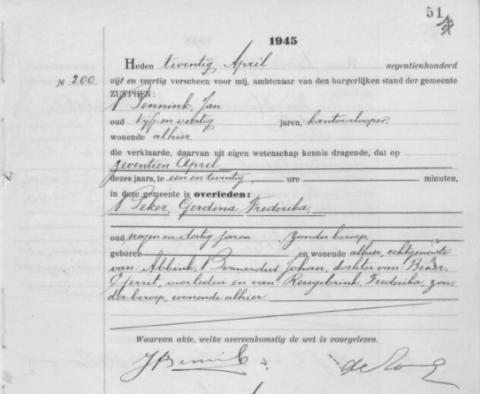 51
1945
Heden twintig April negentienhonderd
№ 200.
vijf en veertig verscheen voor mij, ambtenaar van den burgerlijken stand der gemeente
ZUTPHEN:
Jan
oud vyf en veertig jaren, kantoorlooper,
wonende alhier
die verklaarde, daarvan uit eigen wetenschap kennis dragende, dat op
zeventien April
dezes jaars, te een en twintig ure minuten,
in deze gemeente is overleden:
Gerdina Frederika,
oud negen en dertig jaren zonder beroep,
geboren en wonende alhier, echtgenoote
van Abbink, Johan, dochter van
Gerrit, overleden en van Frederika, zon-
der beroep, wonende alhier.
Waarvan akte, welke overeenkomstig de wet is voorgelezen.